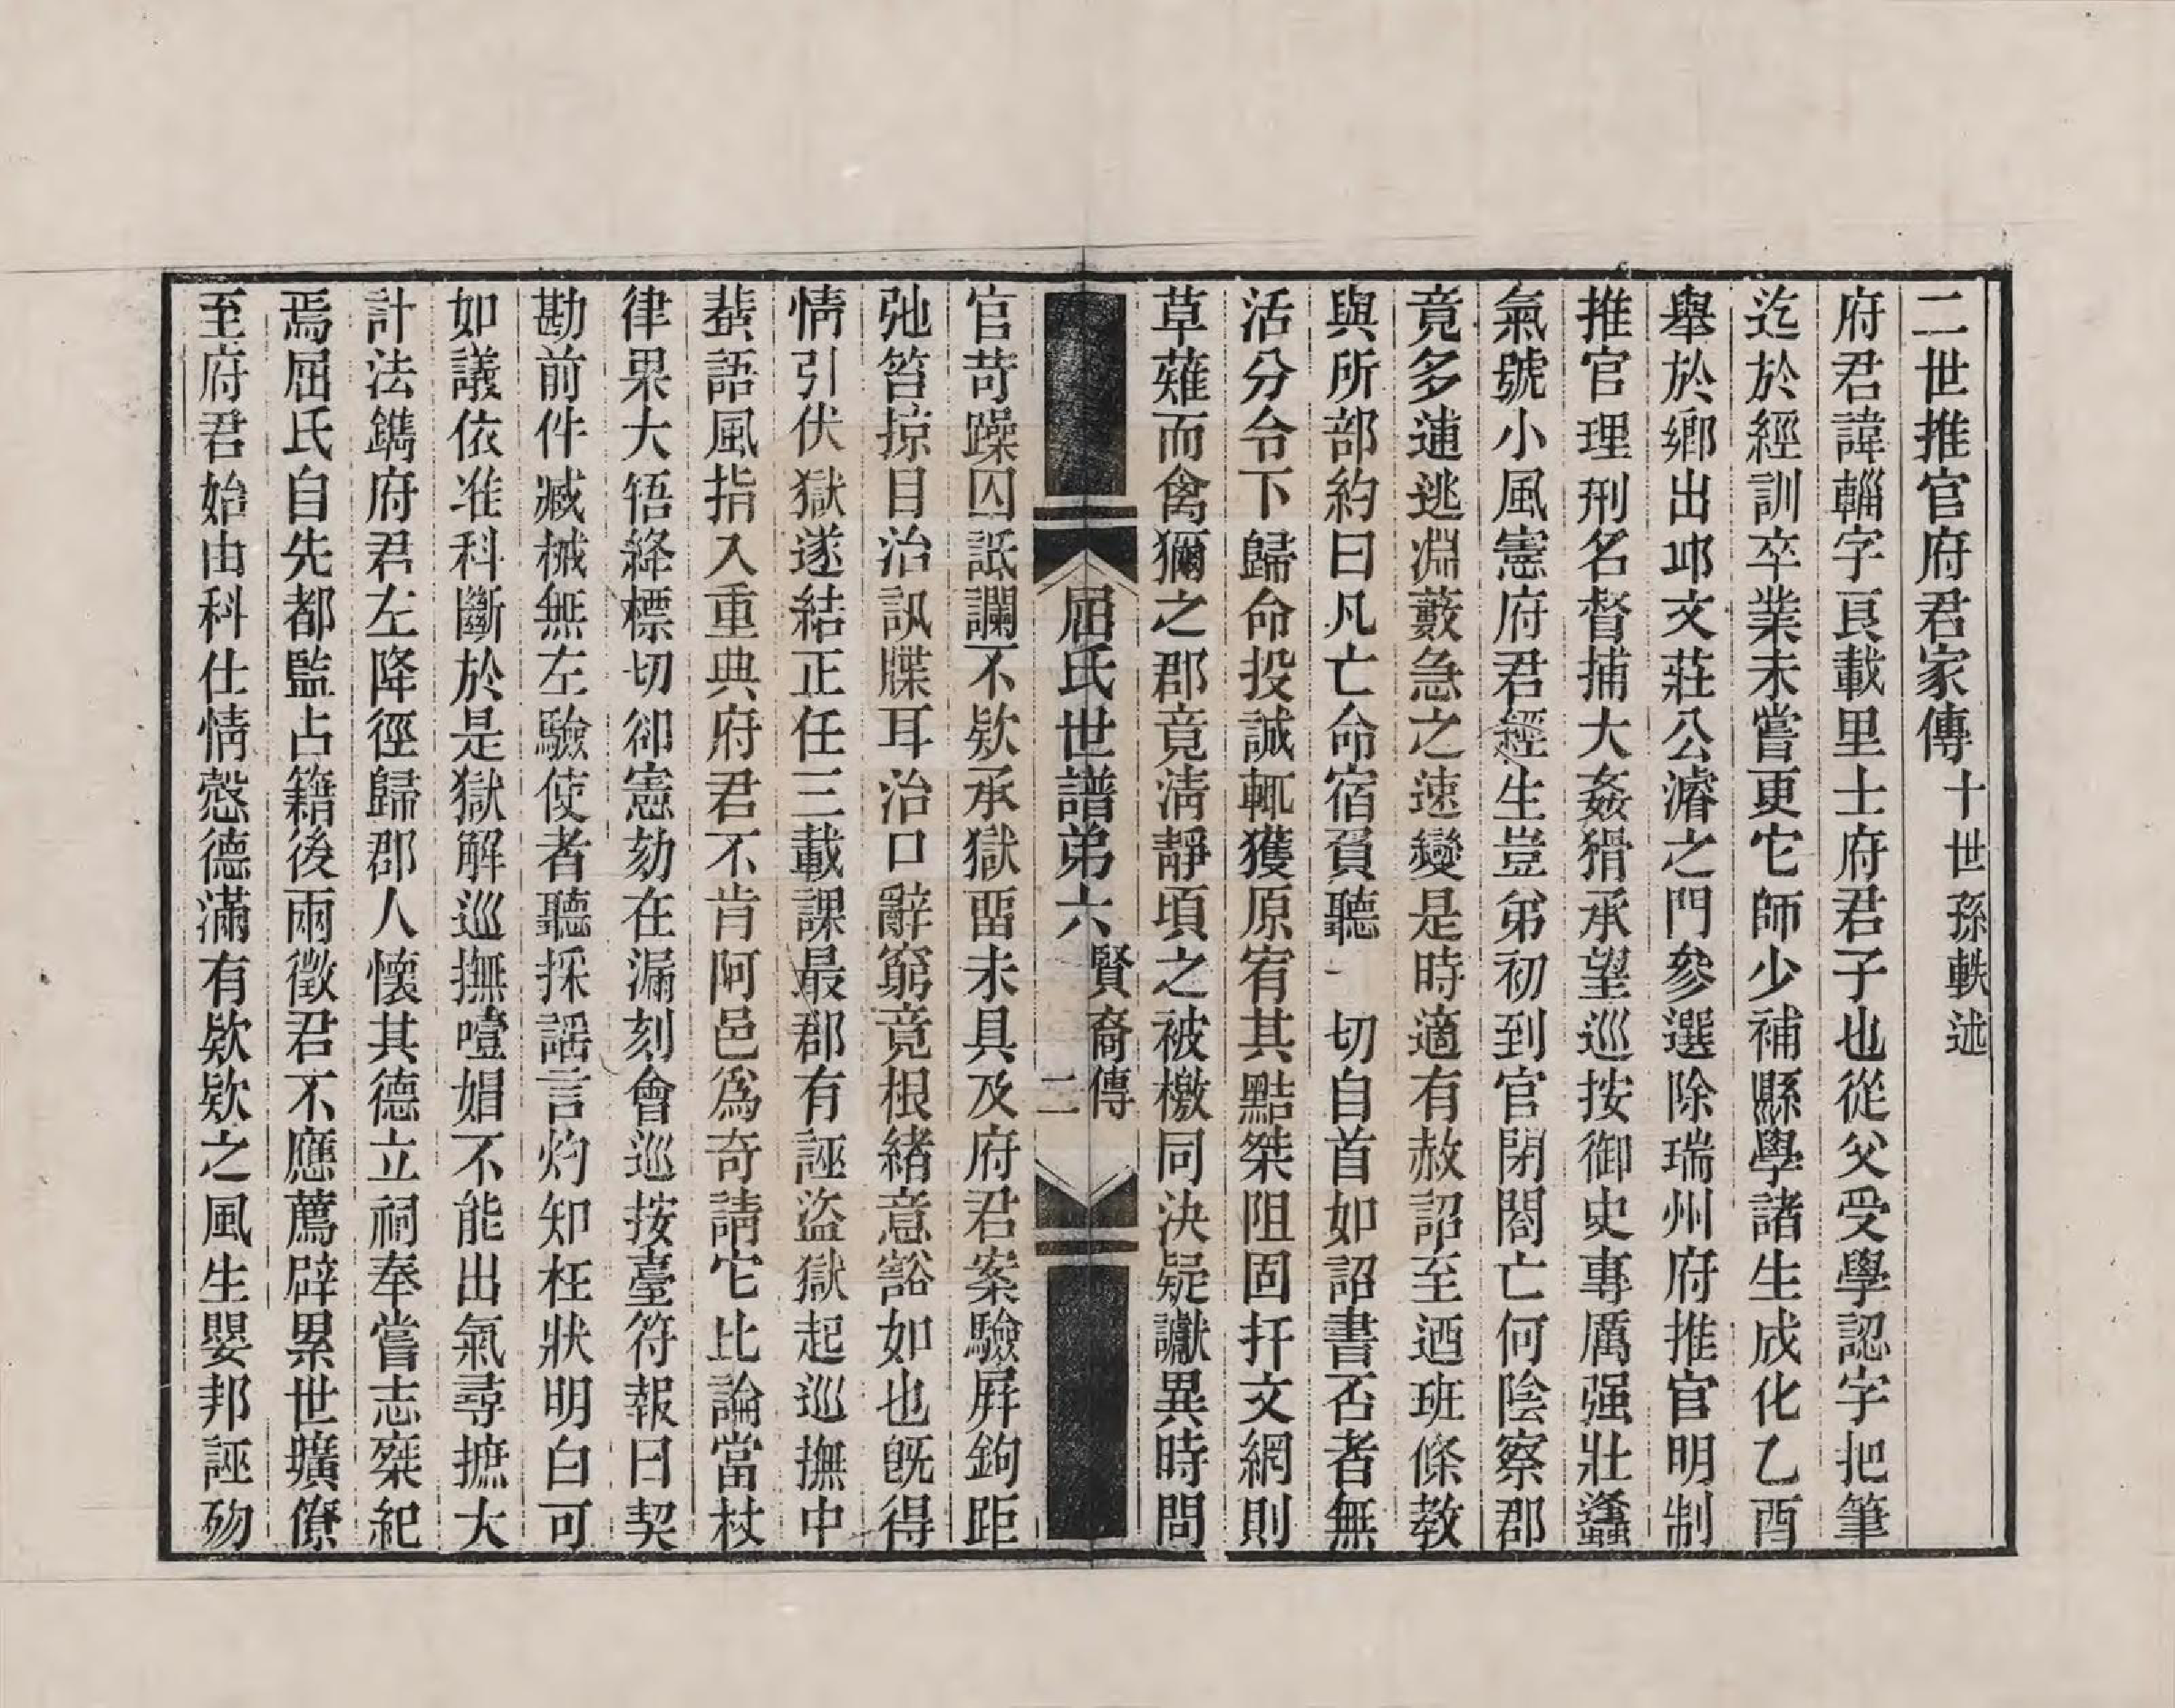 二世推官府君家傳 十世孫軼述
府君諱輜字良載里士府君子也從父受學認字把筆
迄於經訓卒業未嘗更它師少補縣學諸生成化乙酉
舉於鄉出邱文莊公濬之門參選除瑞州府推官明制
推官理刑名督捕大姦猾承望巡按御史專厲强壯蠭
氣號小風憲府君經生豈弟初到官閉閤亡何陰察郡
竟多逋逃淵藪急之速變是時適有赦詔至迺班條教
與所部約曰凡亡命宿負聽一切自首如詔書否者無
活分令下歸命投誠輒獲原宥其黠桀阻固扞文網則
草薙而禽獮之郡竟淸靜頃之被檄同決疑讞異時問
屈氏世譜弟六 賢裔傳 二
官苛躁囚詆讕不欵承獄畱未具及府君案驗屛鉤距
弛笞掠目治訊牒耳治口辭窮竟根緒意豁如也旣得
情引伏獄遂結正任三載課最郡有誣盜獄起巡撫中
蜚語風指入重典府君不肯阿邑爲奇請它比論當杖
律果大啎絳標切卻憲劾在漏刻會巡按臺符報曰契
勘前件臧械無左驗使者聽採謡言灼知枉狀明白可
如議依准科斷於是獄解巡撫噎媢不能出氣尋摭大
計法鐫府君左降徑歸郡人懷其德立祠奉嘗志椉紀
焉屈氏自先都監占籍後兩徵君不應薦辟累世壙僚
至府君始由科仕情慤德滿有欵欵之風生嬰邦誣歾